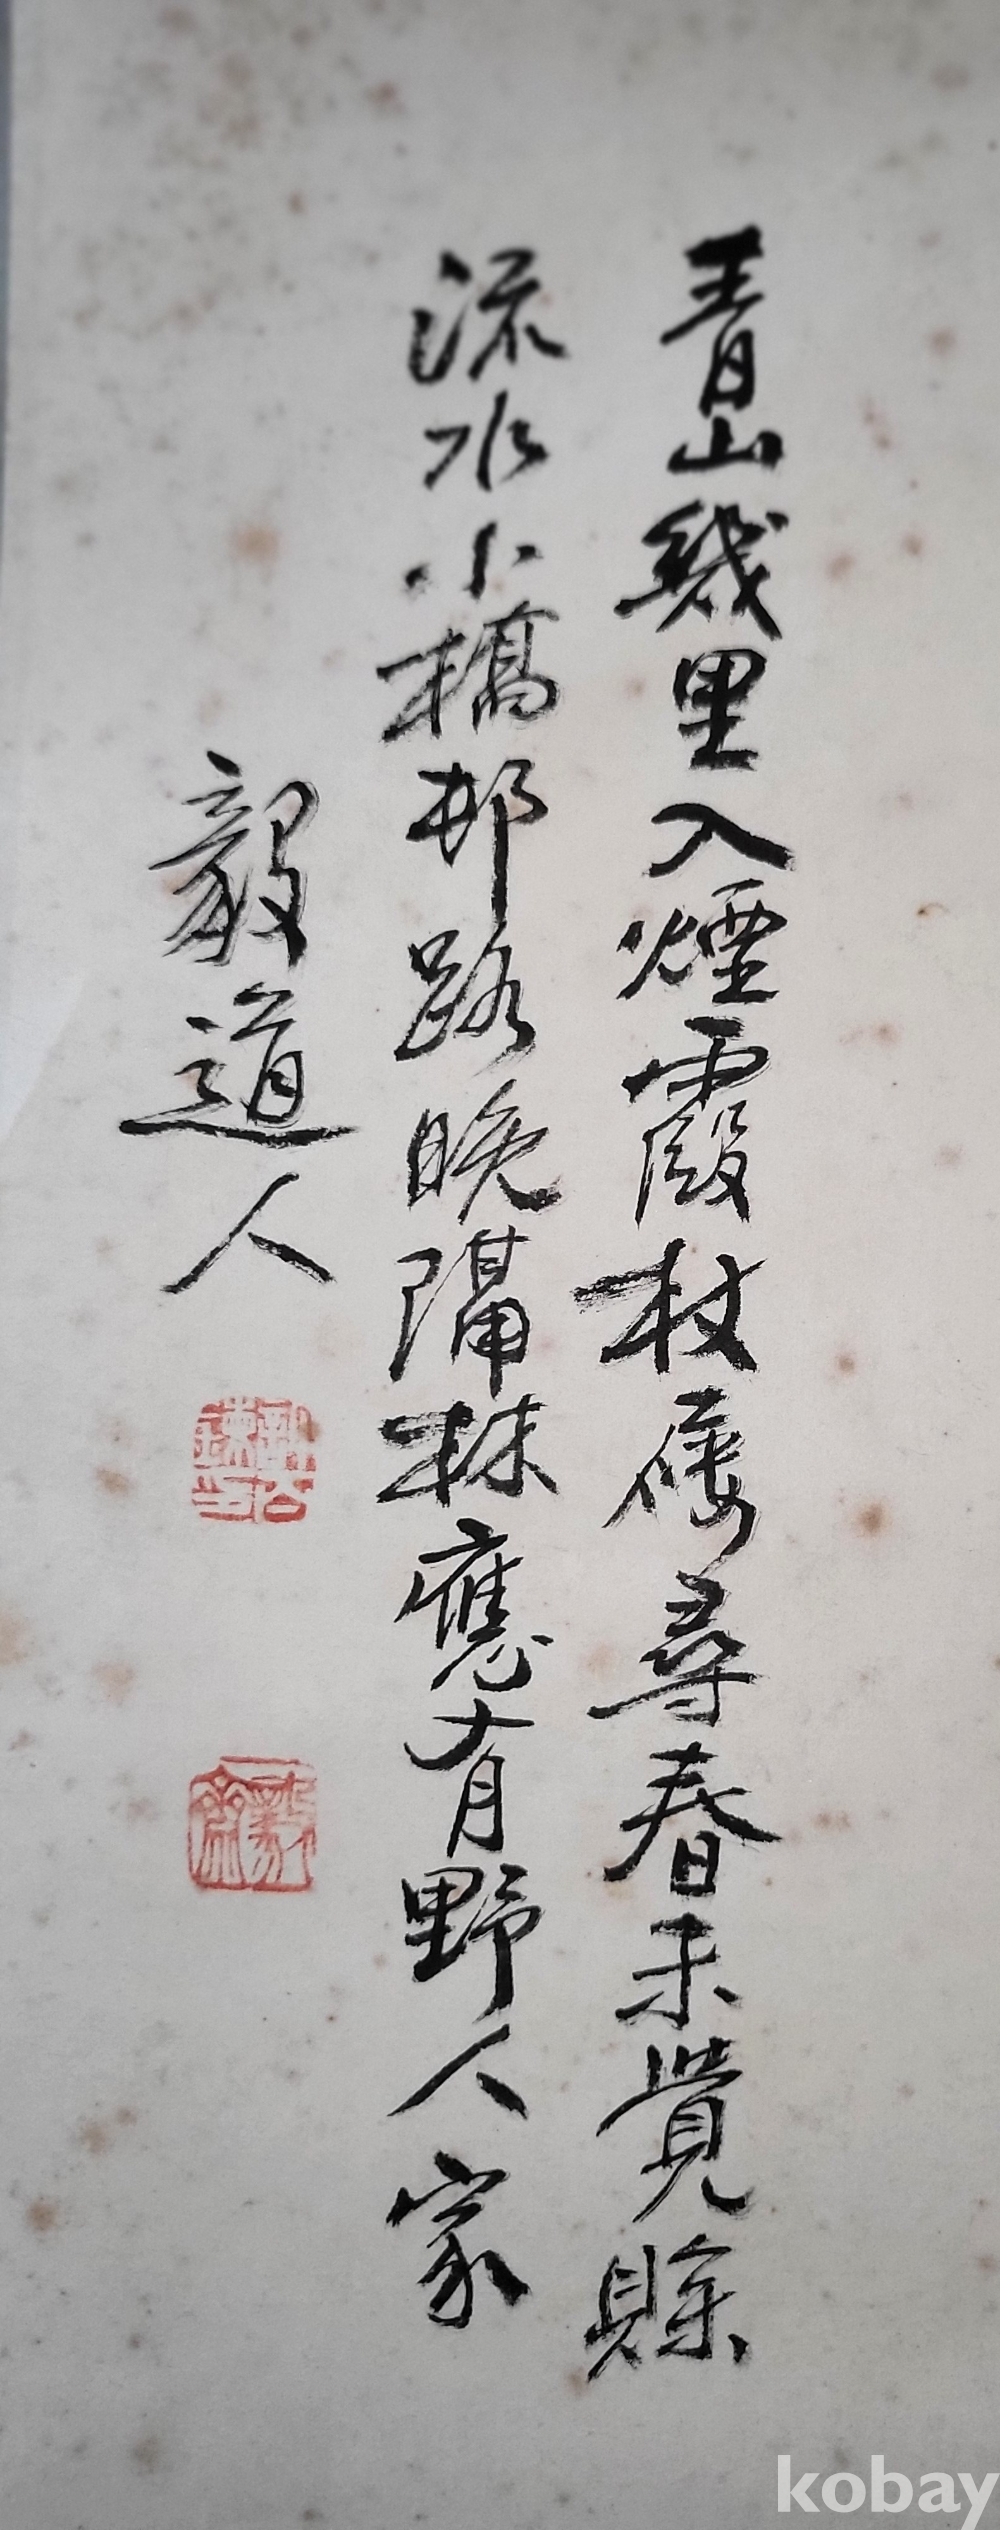 青山幾里入煙霞杖屨尋春未覺賒
流水小橋邨路晚隔林應有野人家
毅道人
kobay